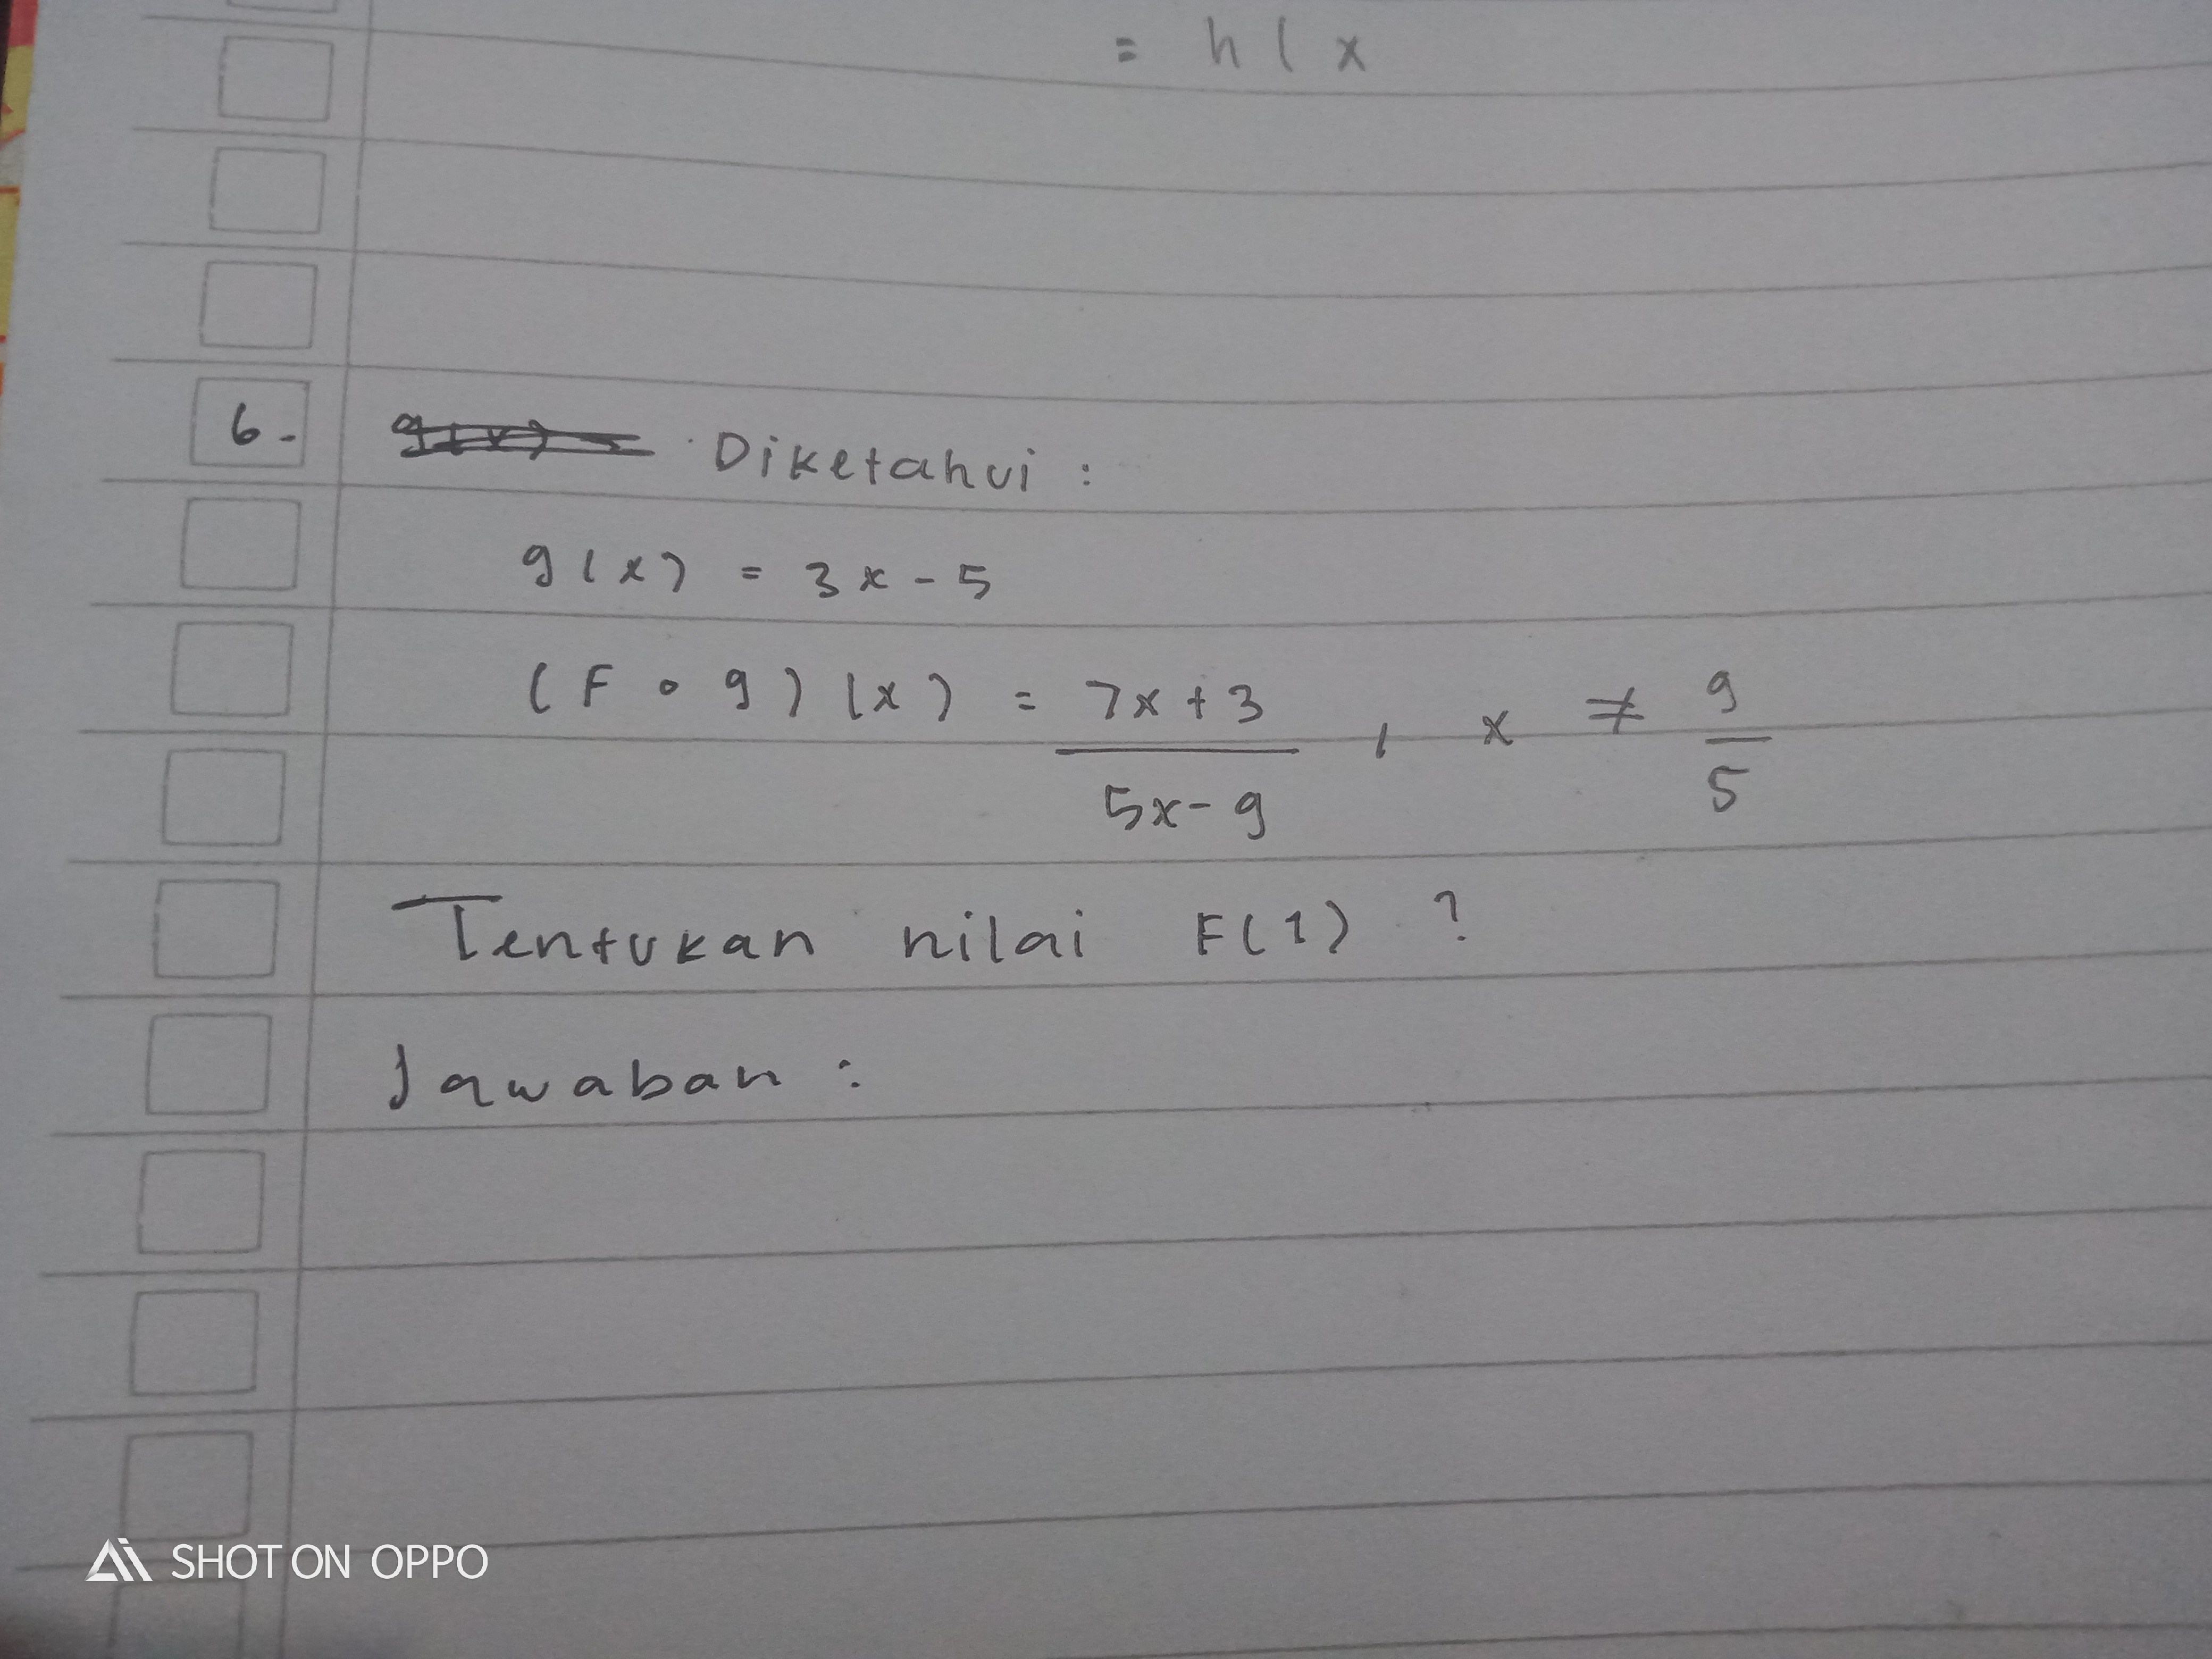 = h ( x
6. Diketahui :
g(x) = 3x - 5
(F ∘ g) (x) = 7x + 3 / 5x - 9 , x ≠ 9 / 5
Tentukan nilai F(1) ?
Jawaban :
SHOT ON OPPO